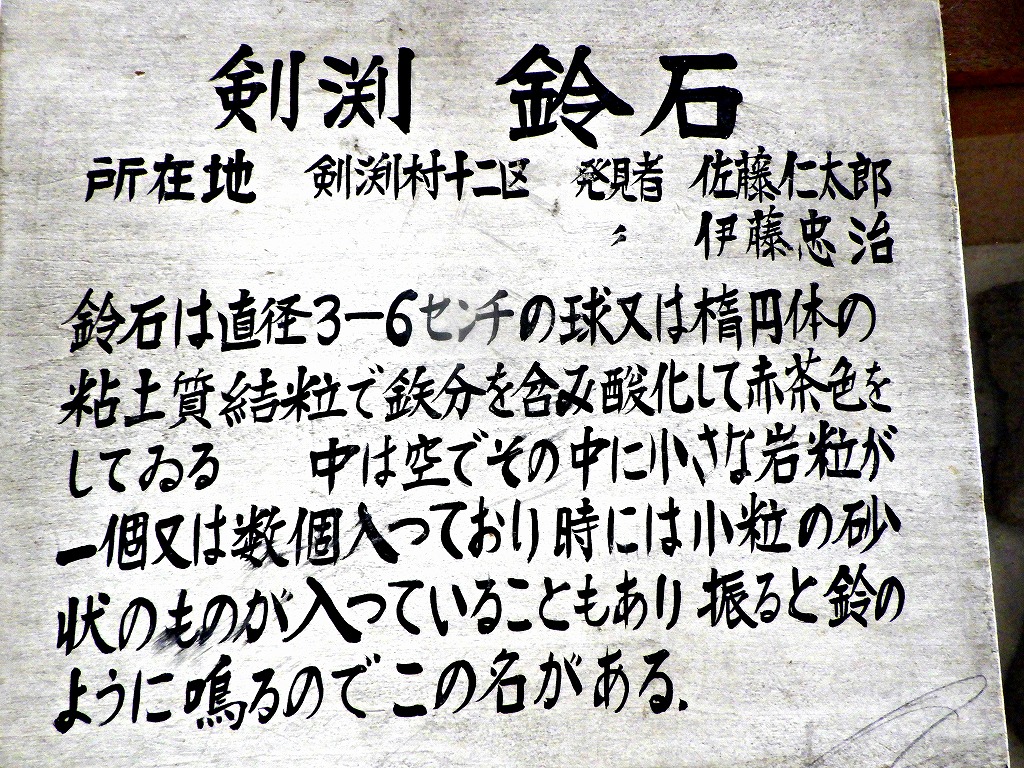 剣渕 鈴石
所在地 剣渕村十二区 発見者 佐藤仁太郎
〃 伊藤忠治
鈴石は直径3−6センチの球又は楕円体の
粘土質結粒で鉄分を含み酸化して赤茶色を
してゐる 中は空でその中に小さな岩粒が
一個又は数個入っており時には小粒の砂
状のものが入っていることもあり振ると鈴の
ように鳴るのでこの名がある.